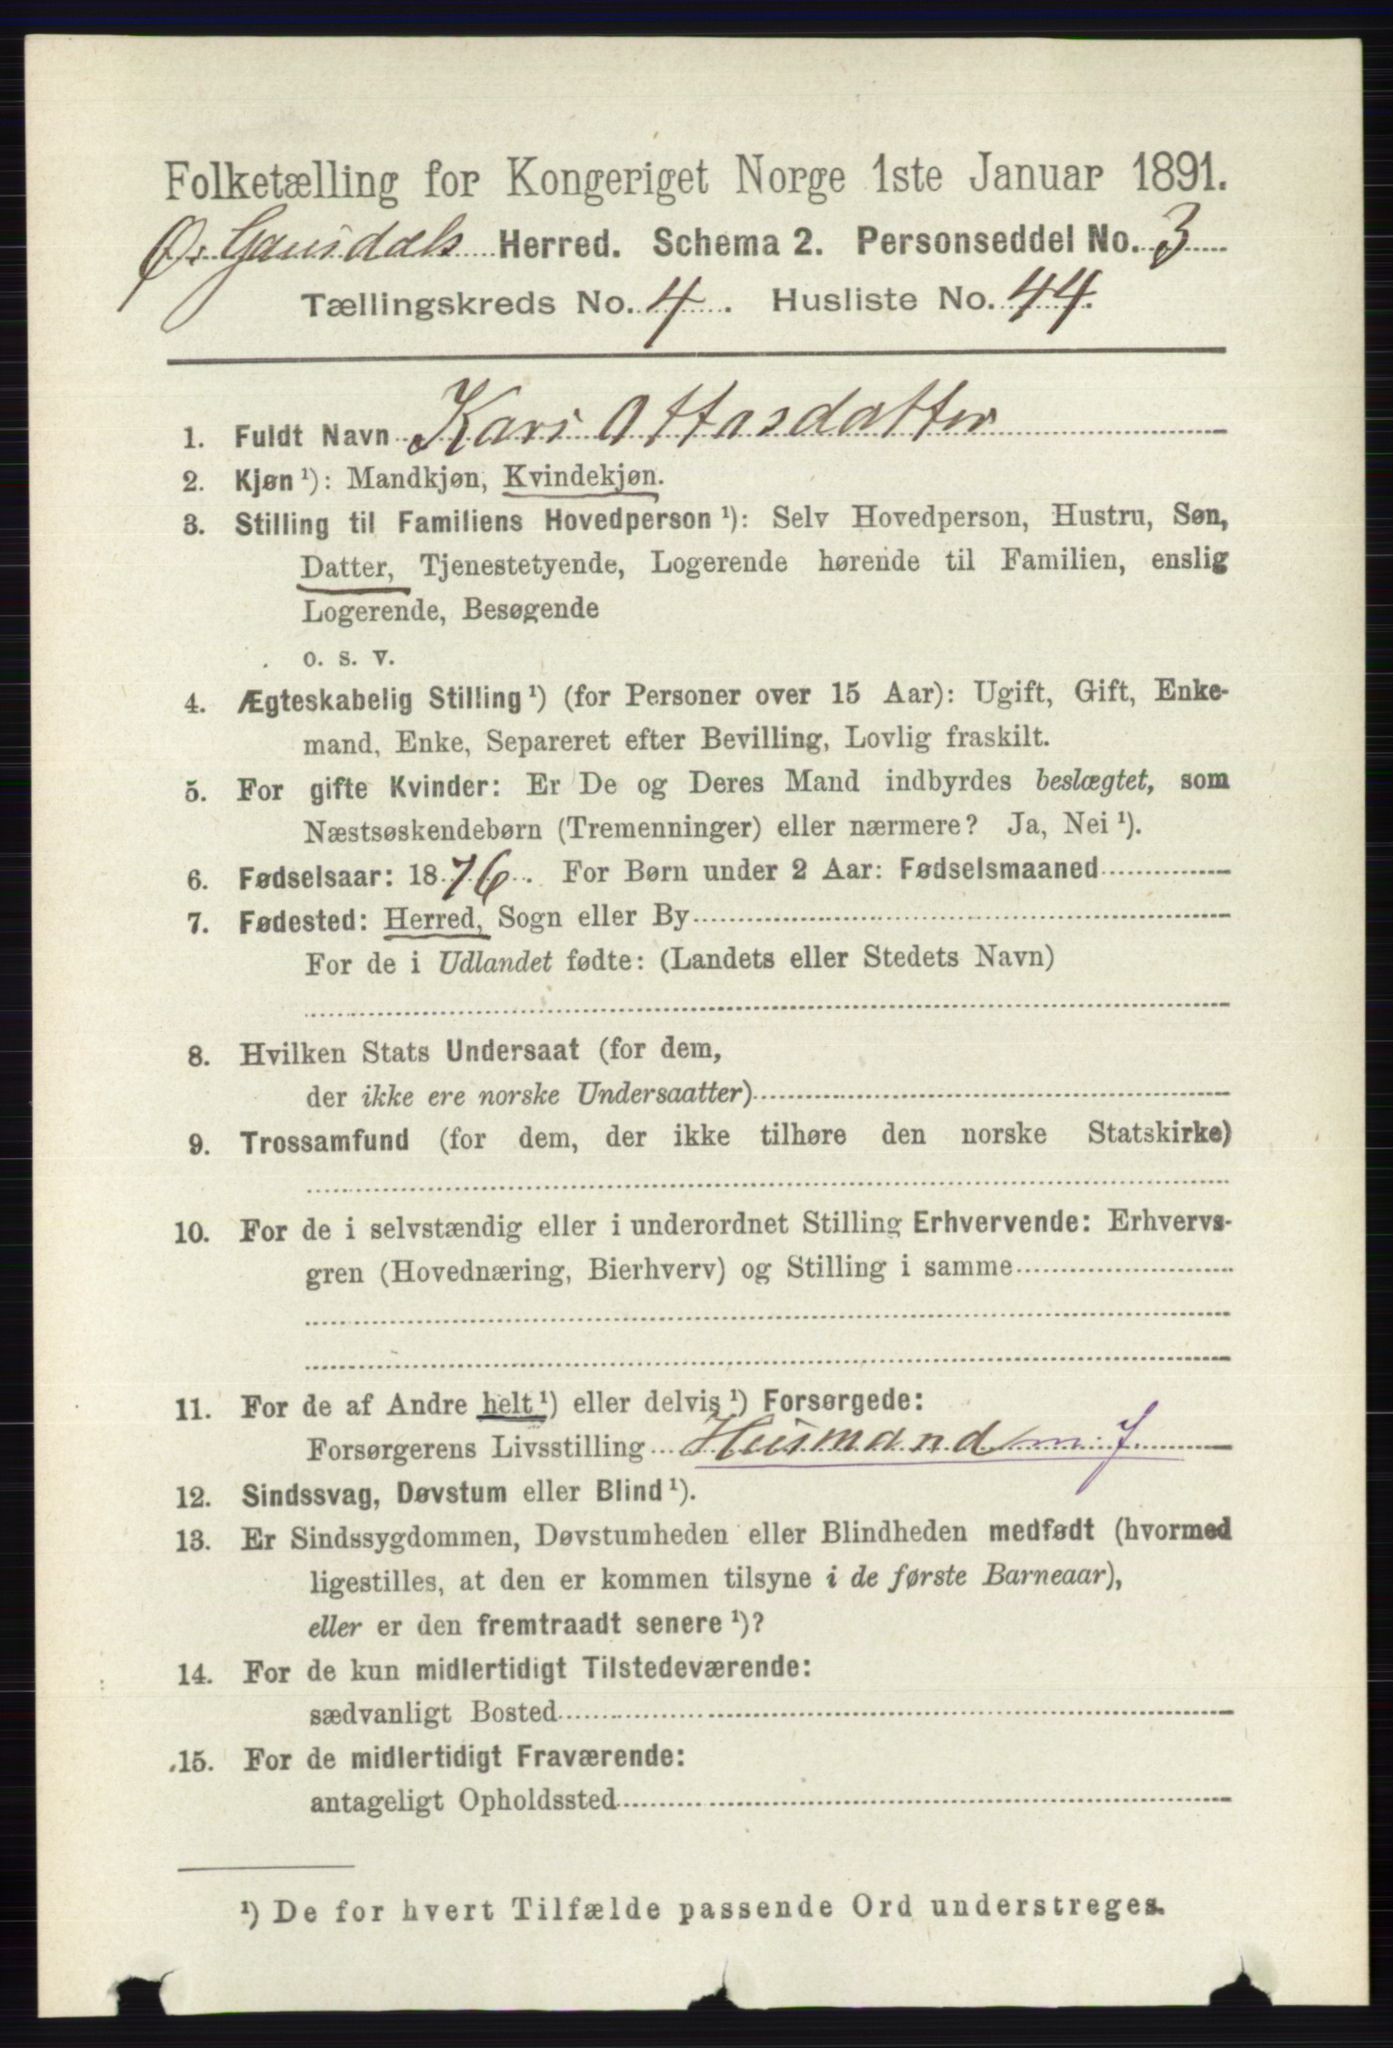 Folketælling for Kongeriget Norge 1ste Januar 1891.
Ø. Gausdals Herred. Schema 2. Personseddel No. 3
Tællingskreds No. 4. Husliste No. 44.
1. Fuldt Navn Kari Ottasdatter
2. Kjøn ¹): Mandkjøn, Kvindekjøn.
3. Stilling til Familiens Hovedperson ¹): Selv Hovedperson, Hustru, Søn,
Datter, Tjenestetyende, Logerende hørende til Familien, enslig
Logerende, Besøgende
o. s. v.
4. Ægteskabelig Stilling ¹) (for Personer over 15 Aar): Ugift, Gift, Enke-
mand, Enke, Separeret efter Bevilling, Lovlig fraskilt.
5. For gifte Kvinder: Er De og Deres Mand indbyrdes beslægtet, som
Næstsøskendebørn (Tremenninger) eller nærmere? Ja, Nei ¹).
6. Fødselsaar: 1876. For Børn under 2 Aar: Fødselsmaaned
7. Fødested: Herred, Sogn eller By
For de i Udlandet fødte: (Landets eller Stedets Navn)
8. Hvilken Stats Undersaat (for dem,
der ikke ere norske Undersaatter)
9. Trossamfund (for dem, der ikke tilhøre den norske Statskirke)
10. For de i selvstændig eller i underordnet Stilling Erhvervende: Erhvervs-
gren (Hovednæring, Bierhverv) og Stilling i samme
11. For de af Andre helt ¹) eller delvis ¹) Forsørgede:
Forsørgerens Livsstilling Husmand m. J.
12. Sindssvag, Døvstum eller Blind ¹).
13. Er Sindssygdommen, Døvstumheden eller Blindheden medfødt (hvormed
ligestilles, at den er kommen tilsyne i de første Barneaar),
eller er den fremtraadt senere ¹)?
14. For de kun midlertidigt Tilstedeværende:
sædvanligt Bosted
15. For de midlertidigt Fraværende:
antageligt Opholdssted
¹) De for hvert Tilfælde passende Ord understreges.